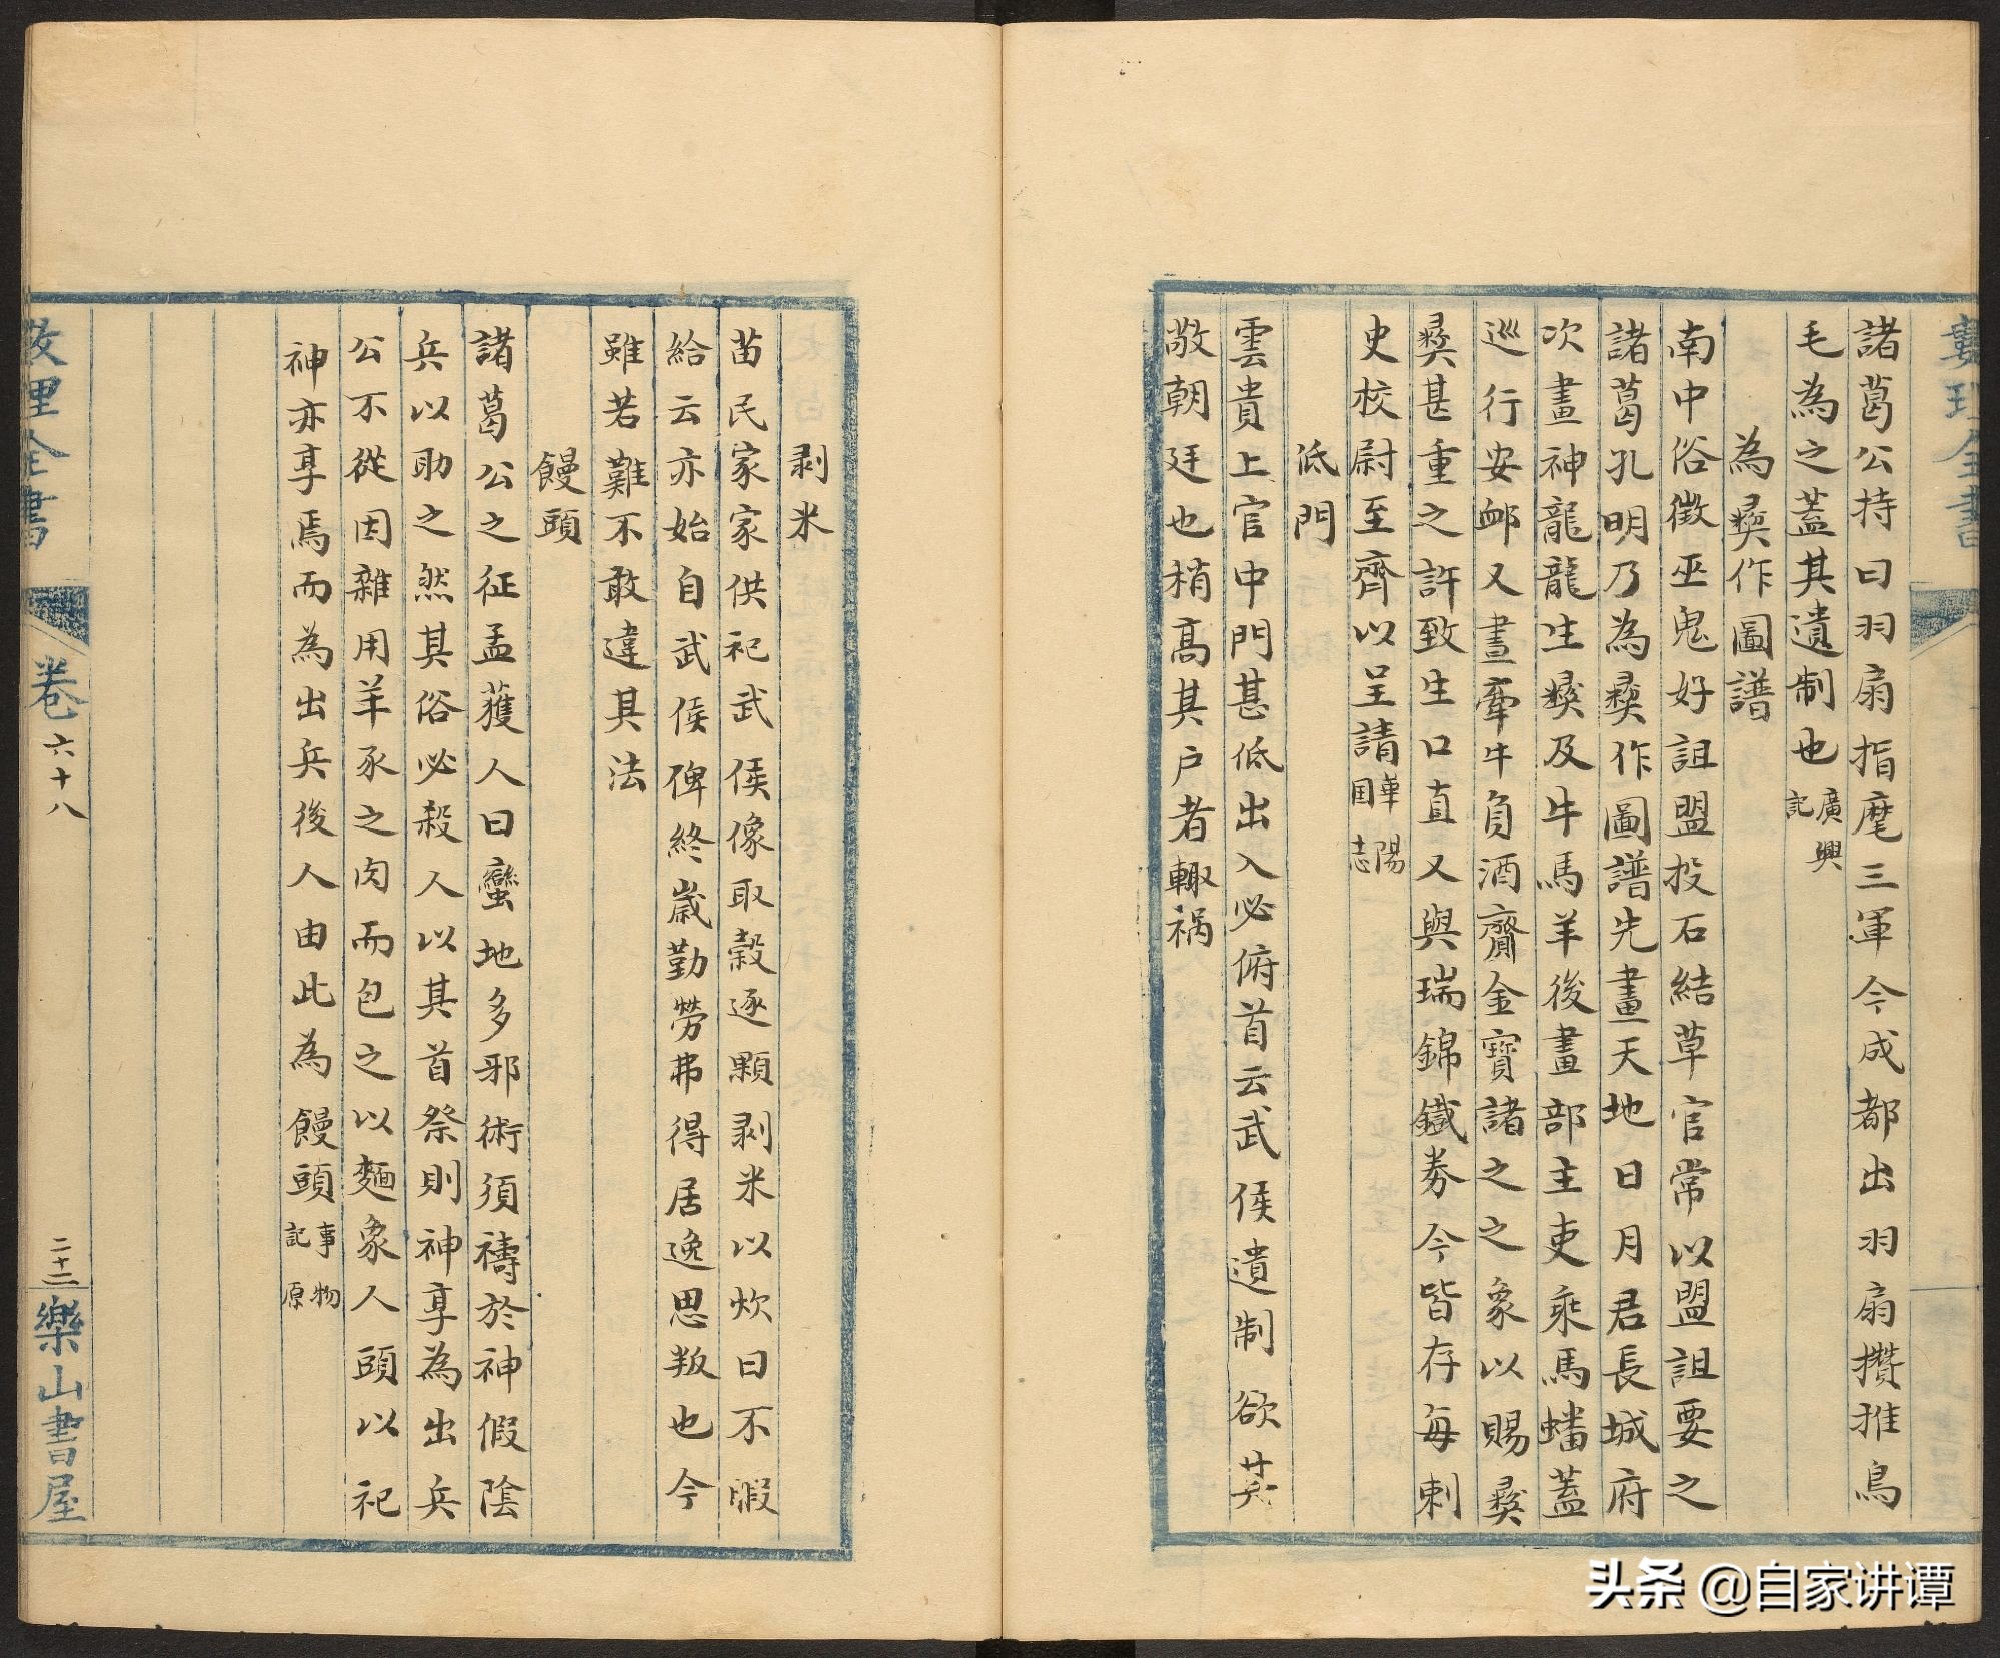 諸葛公持曰羽扇指麾三軍今成都出羽扇攢推鳥
毛為之蓋其遺制也廣興記
為彜作圖譜
南中俗徵巫鬼好詛盟投石結草官常以盟詛要之
諸葛孔明乃為彜作圖譜先畫天地日月君長城府
次畫神龍龍生彜及牛馬羊後畫部主吏乘馬蟠蓋
巡行安卹又畫牽牛負酒齎金寶諸之之象以賜彜
彜甚重之許致生口直又與瑞錦鐵券今皆存每刺
史校尉至齊以呈請華陽国志
低門
雲貴上官中門甚低出入必俯首云武侯遺制欲其
敬朝廷也稍高其户者輙禍
剥米
苗民家家供祀武侯像取穀逐顆剥米以炊曰不暇
給云亦始自武侯碑終歲勤勞弗得居逸思叛也今
雖若難不敢違其法
饅頭
諸葛公之征孟獲人曰蠻地多邪術須禱於神假陰
兵以助之然其俗必殺人以其首祭則神享為出兵
公不從因雜用羊豕之肉而包之以麵象人頭以祀
神亦享焉而為出兵後人由此為饅頭事物記原
全書
卷六十八
二十二
樂山書屋
全書
头条 @自家讲谭